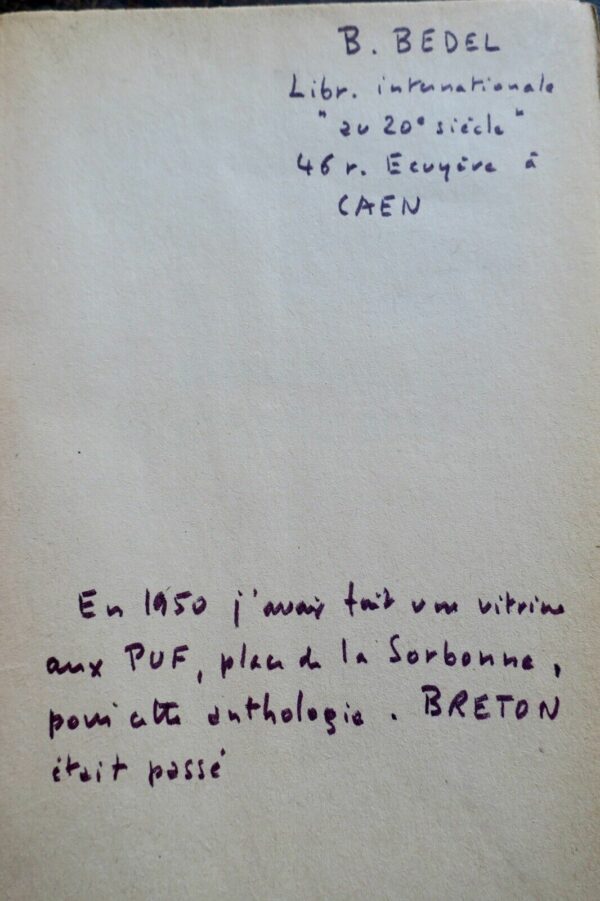 B. BEDEL
Libr. internationale
"au 20e siècle"
46 r. Ecuyère à
CAEN
En 1950 j'avais fait une vitrine
aux PUF, place de la Sorbonne,
pour cette anthologie. BRETON
était passé